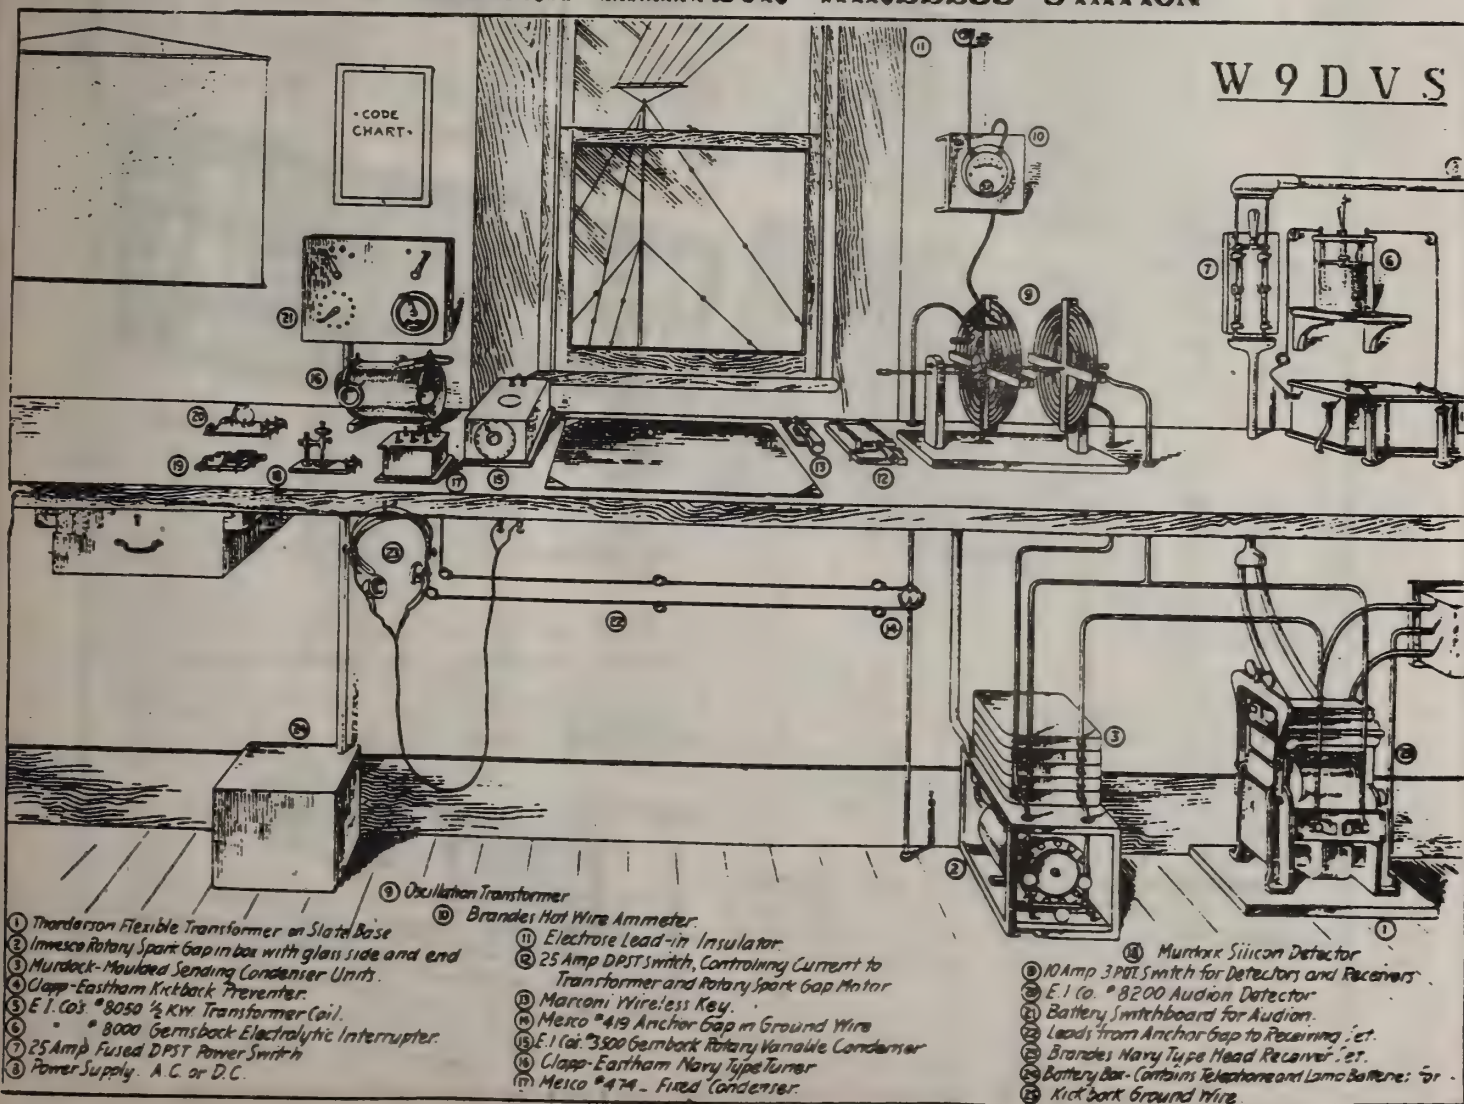 WIRELESS STATION
W9DVS
·CODE
CHART·
⑨ Oscillation Transformer
⑩ Brandes Hot Wire Ammeter.
① Thordarson Flexible Transformer on Slate Base
② Inwesco Rotary Spark Gap in box with glass side and end
③ Murdock-Moulded Sending Condenser Units.
④ Clapp-Eastham Kickback Preventer.
⑤ E.I. Co's. #8050 ½ KW. Transformer Coil.
⑥ " " #8000 Gernsback Electrolytic Interrupter.
⑦ 25 Amp Fused DPST Power Switch
⑧ Power Supply. A.C. or D.C.
⑪ Electrose Lead-in Insulator.
⑫ 25 Amp DPST Switch, Controlling Current to
Transformer and Rotary Spark Gap Motor
⑬ Marconi Wireless Key.
⑭ Mesco #419 Anchor Gap in Ground Wire
⑮ E.I. Co's. #3500 Gernback Rotary Variable Condenser
⑯ Clapp-Eastham Navy Type Tuner
⑰ Mesco #474 - Fixed Condenser.
⑱ Murdock Silicon Detector
⑲ 10 Amp 3PDT Switch for Detectors and Receivers
⑳ E.I. Co. #8200 Audion Detector
㉑ Battery Switchboard for Audion.
㉒ Leads from Anchor Gap to Receiving Set.
㉓ Brandes Navy Type Head Receiver Set.
㉔ Battery Box - Contains Telephone and Lamp Batteries for
㉕ Kickback Ground Wire